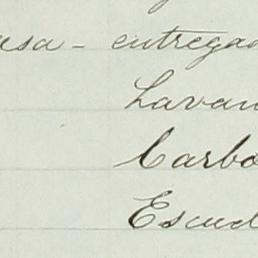 usa - entregad
Lavan
Carbo
Escud